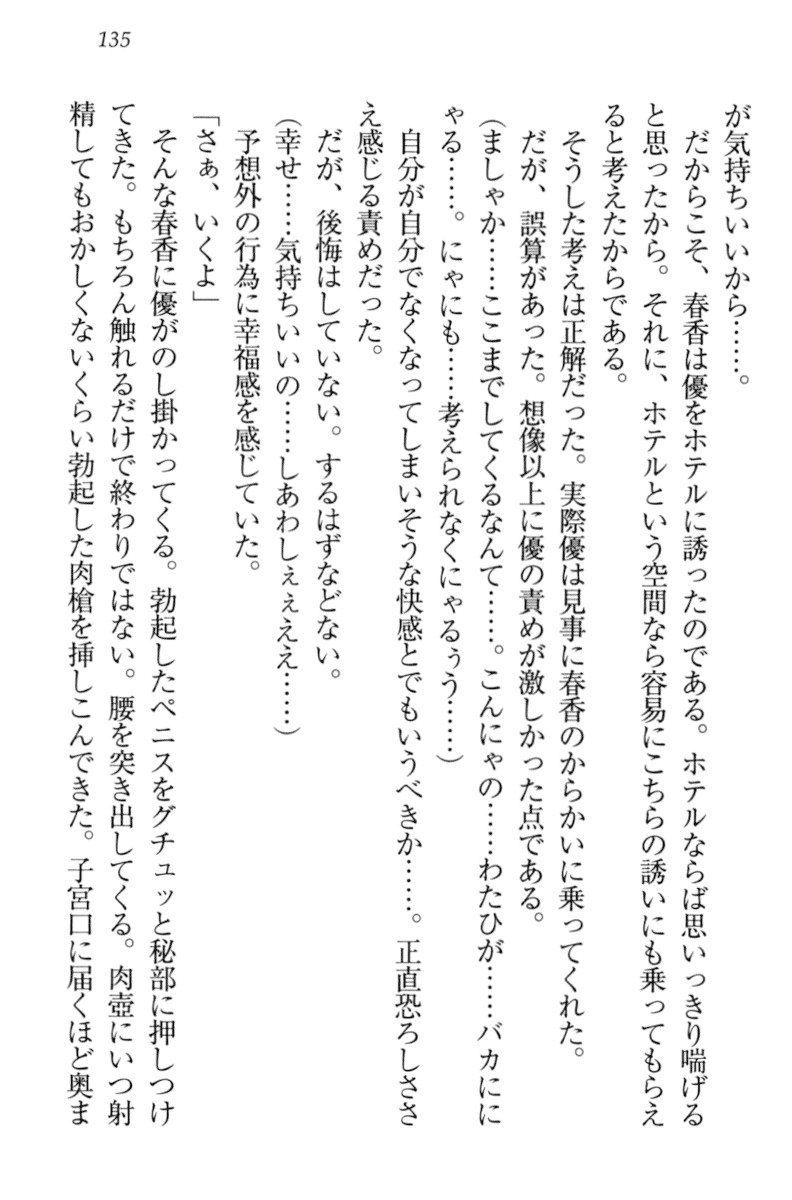 135
が気持ちいいから……。
だからこそ、春香は優をホテルに誘ったのである。ホテルならば思いっきり喘げる
と思ったから。それに、ホテルという空間なら容易にこちらの誘いにも乗ってもらえ
ると考えたからである。
そうした考えは正解だった。実際優は見事に春香のからかいに乗ってくれた。
だが、誤算があった。想像以上に優の責めが激しかった点である。
(ましゃか……ここまでしてくるなんて……。こんにゃの……わたひが……バカにに
ゃる……。にゃにも……考えられなくにゃるぅう……)
自分が自分でなくなってしまいそうな快感とでもいうべきか……。正直恐ろしささ
え感じる責めだった。
だが、後悔はしていない。するはずなどない。
(幸せ……気持ちいいの……しあわしぇぇええ……)
予想外の行為に幸福感を感じていた。
「さぁ、いくよ」
そんな春香に優がのし掛かってくる。勃起したペニスをグチュッと秘部に押しつけ
てきた。もちろん触れるだけで終わりではない。腰を突き出してくる。肉壺にいつ射
精してもおかしくないくらい勃起した肉槍を挿しこんできた。子宮口に届くほど奥ま